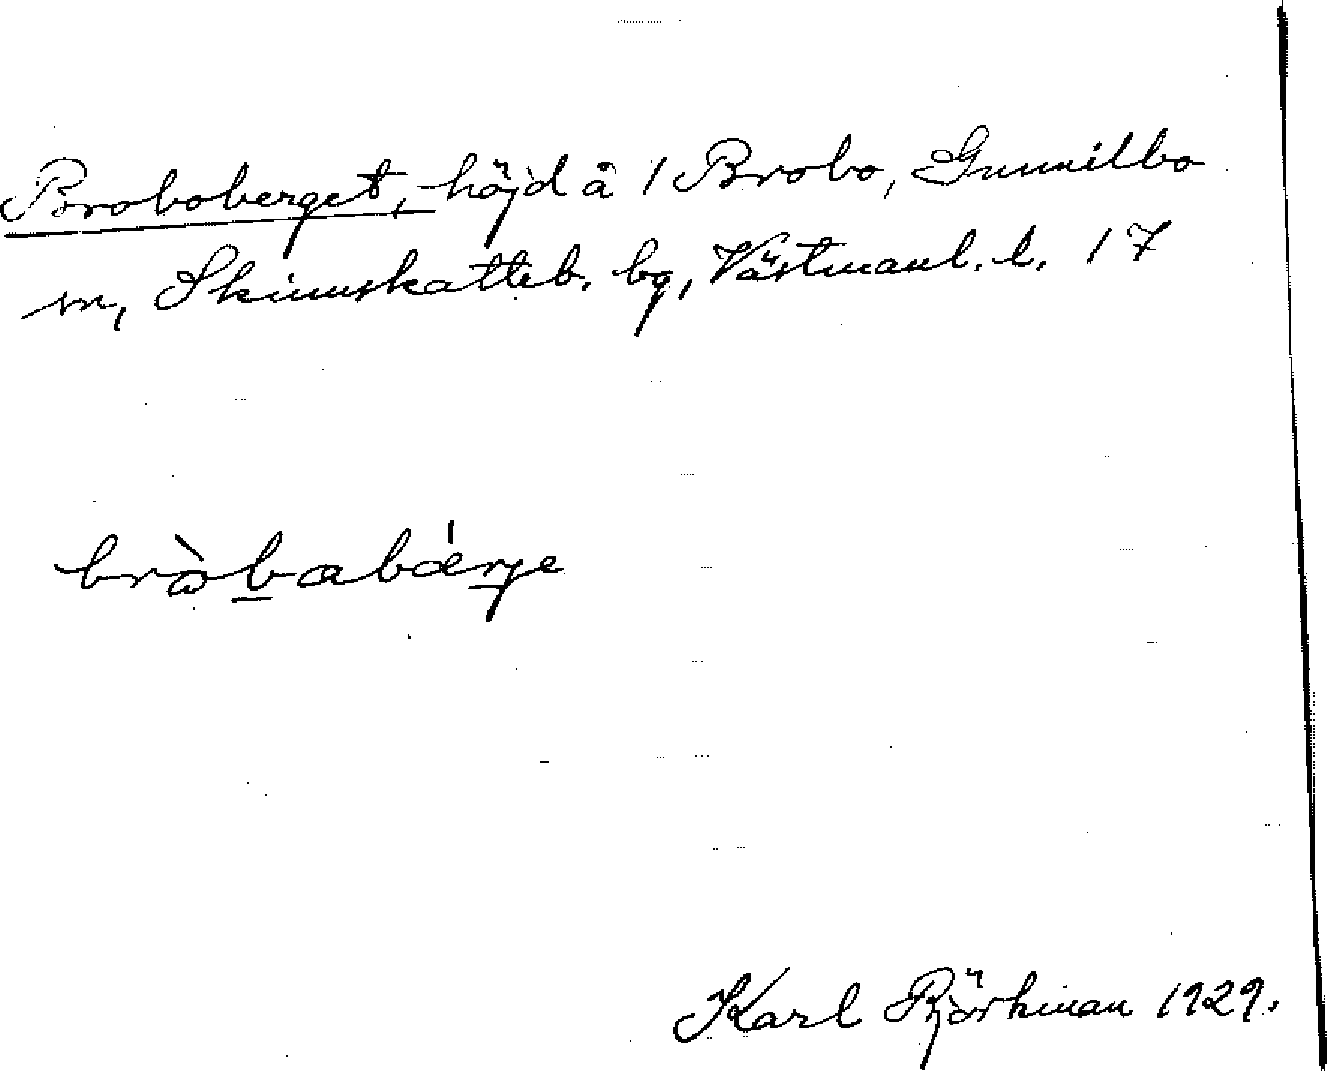 Broboberget, höjd å 1 Brobo, Gunnilbo
sn, Skinnskatteb. bg, Västmanl. l. 17
bròbabárje
Karl Björkman 1929.